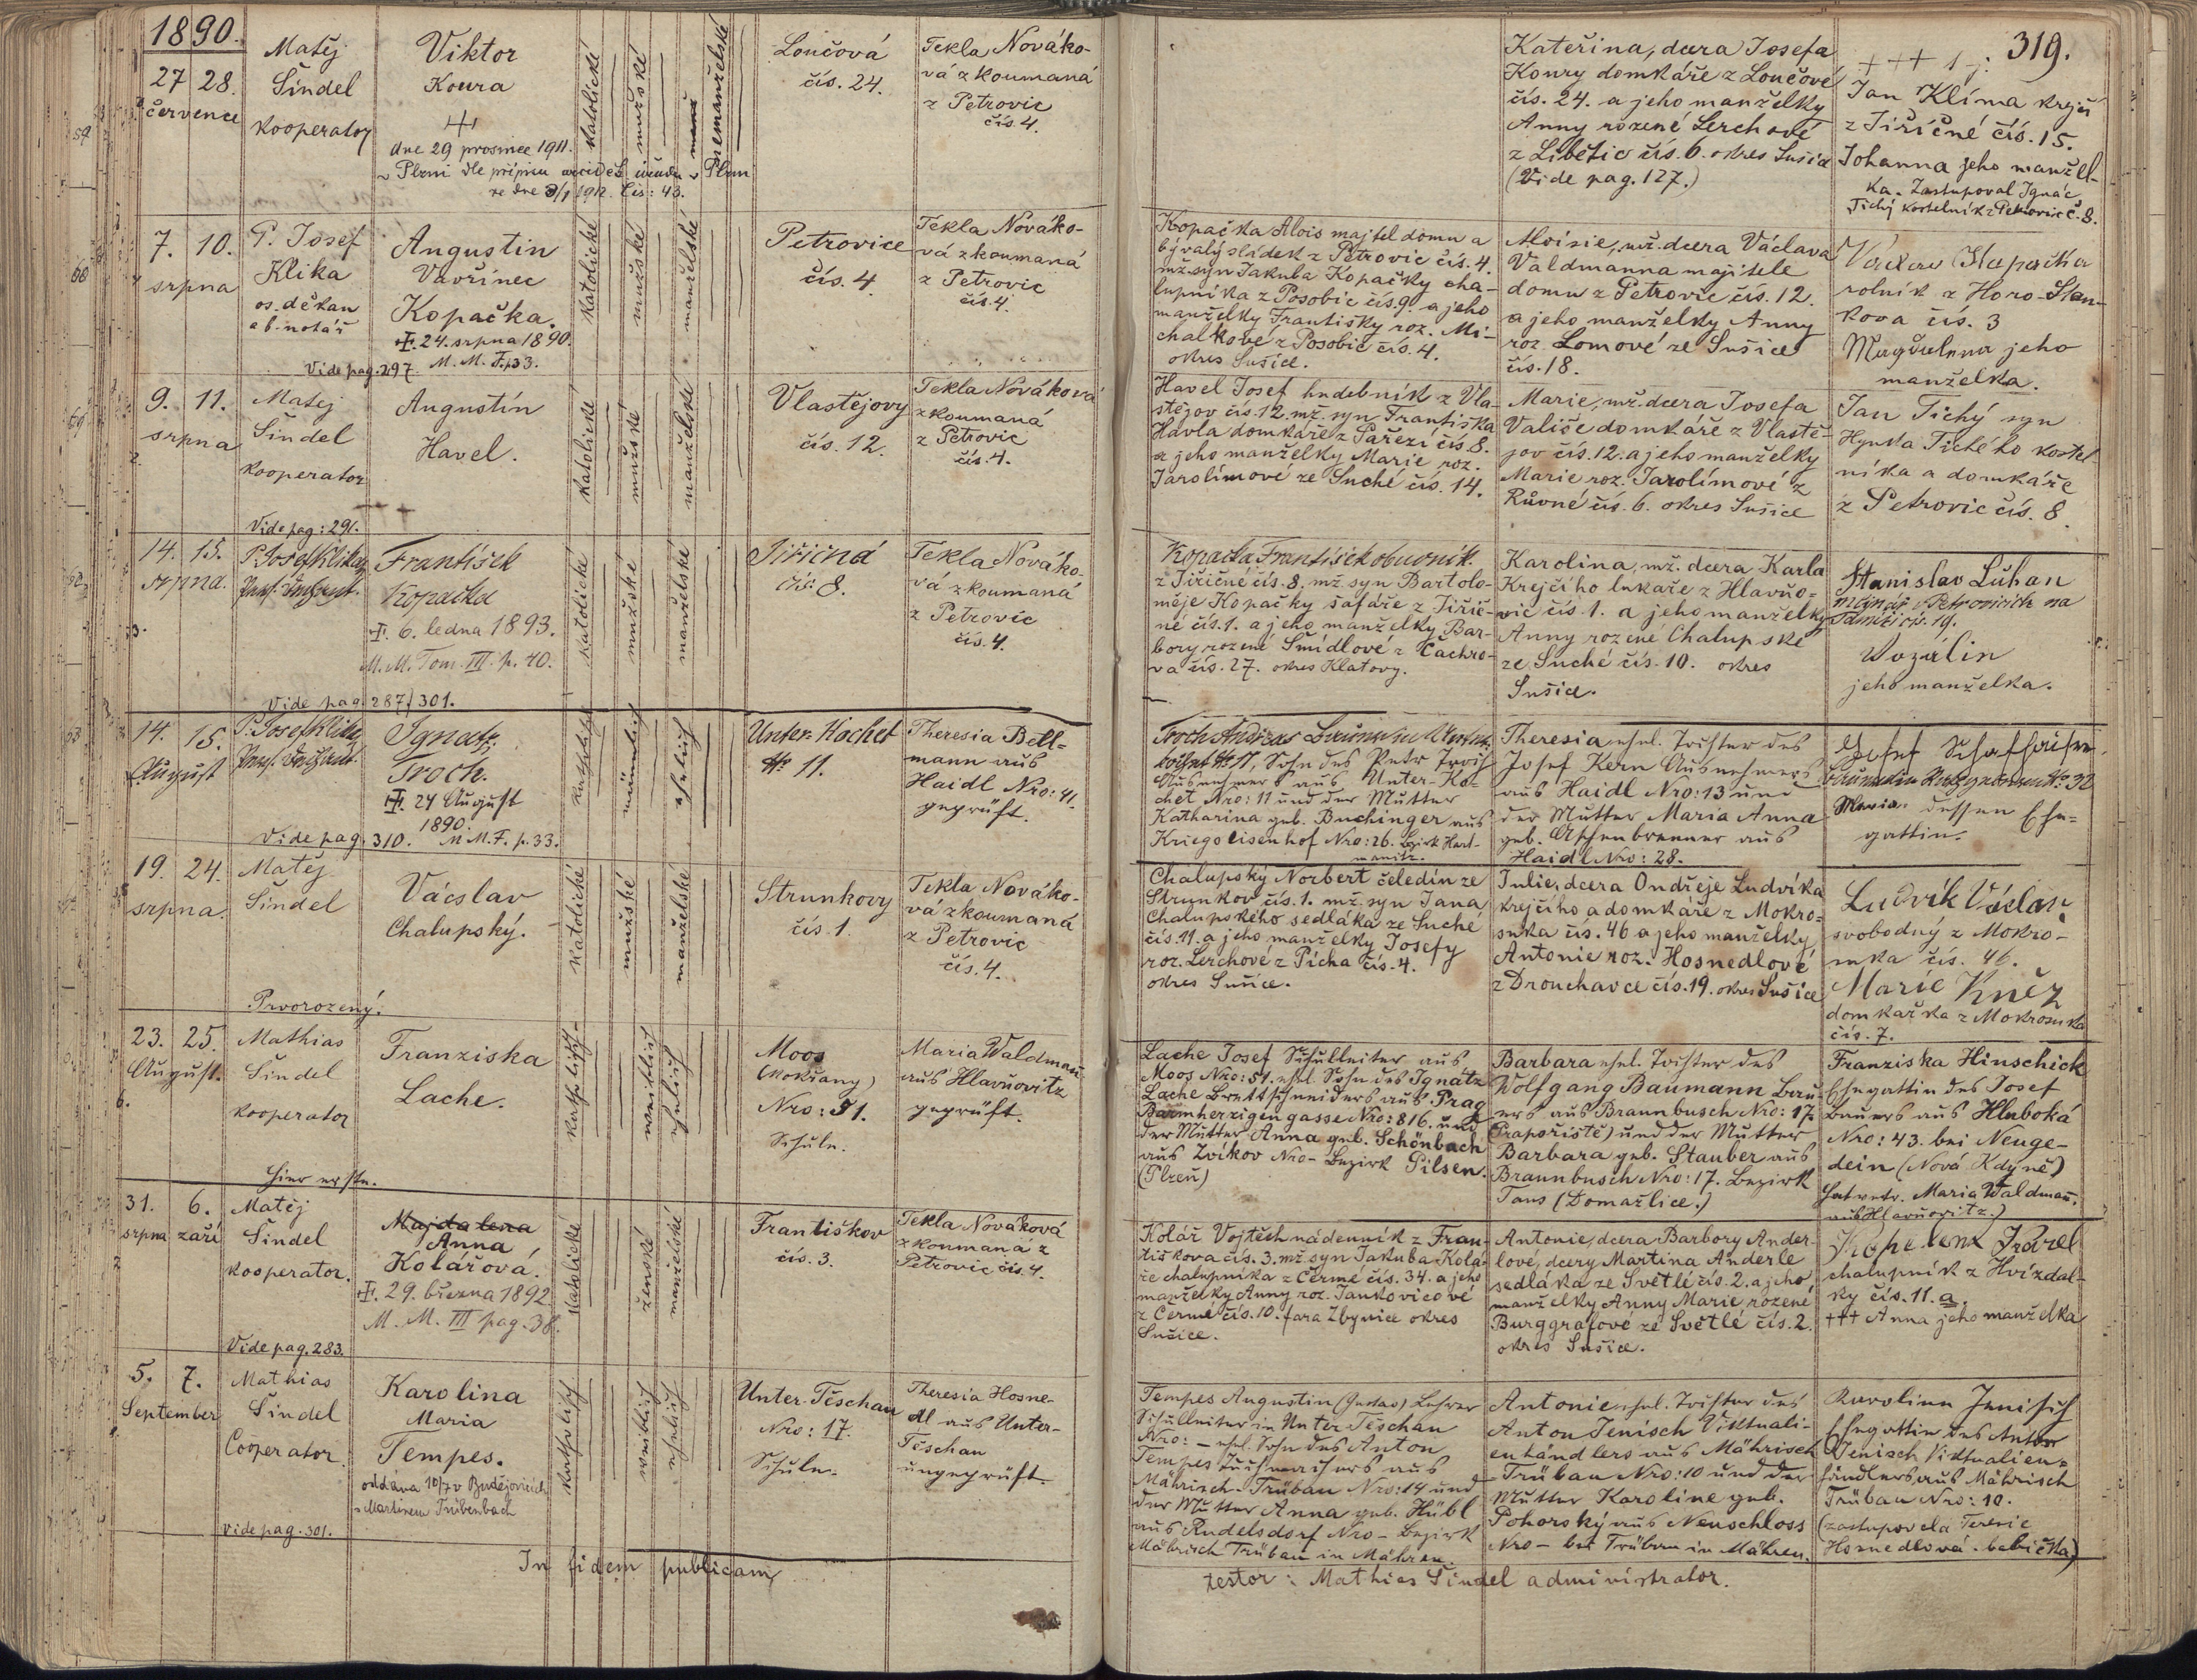 1890.
319.
27 28.
července
Matěj
Šindel
kooperator
Viktor
Koura
dne 29 prosince 1911.
v Plzni dle přípisu
ze dne 3/1 1912. Čís: 43.
katolické
mužské
nemanželské
Loučová
čís. 24.
Tekla Nováko-
vá zkoumaná
z Petrovic
čís. 4.
Kateřina, dcera Josefa
Koury domkáře z Loučové
čís. 24. a jeho manželky
Anny rozené Lerchové
z Libětic čís. 6. okres Sušice
(Vide pag. 127.)
+++
Jan Klíma krejčí
z Jiřičné čís. 15.
Johanna jeho manžel-
ka. Zastupoval Ignác
Tichý kostelník z Petrovic č. 8.
7. 10.
srpna
P. Josef
Klika
os. děkan
a b. notář
Augustin
Vavřinec
Kopačka.
24. srpna 1890.
M. M. F. p. 33.
Vide pag. 297.
katolické
mužské
manželské
Petrovice
čís. 4
Tekla Nováko-
vá zkoumaná
z Petrovic
čís. 4.
Kopačka Alois majtel domu a
bývalý sládek z Petrovic čís. 4.
mž. syn Jakuba Kopačky cha-
lupníka z Posobic čís. 9. a jeho
manželky Františky roz. Mi-
chalkové z Posobic čís. 4.
okres Sušice.
Aloisie, mž. dcera Václava
Valdmanna majitele
domu z Petrovic čís. 12.
a jeho manželky Anny
roz. Lomové ze Sušice
čís. 18.
Václav Kopačka
rolník z Horo-Stan-
kova čís. 3
Magdalena jeho
manželka.
9. 11.
srpna
Matej
Šindel
kooperator
Augustín
Havel.
Vide pag: 291.
katolické
mužské
manželské
Vlastějovy
čís. 12.
Tekla Nováková
zkoumaná
z Petrovic
čís. 4.
Havel Josef hudebník z Vla-
stějov čís. 12. mž. syn Františka
Havla domkáře z Pařezí čís 8.
a jeho manželky Marie roz.
Jarolímové ze Suché čís. 14.
Marie, mž. dcera Josefa
Valiče domkáře z Vlastě-
jov čís. 12. a jeho manželky
Marie roz. Jarolímové z
Růvné čís. 6. okres Sušice
Jan Tichý syn
Hynka Tichého kostel-
níka a domkáře
z Petrovic čís. 8.
14. 15.
srpna.
P. Josef Klika
František
Kopačka
6. ledna 1893.
M. M. Tom. III. p. 40.
Vide pag. 287/301.
katolické
mužské
manželské
Jiřičná
čís: 8.
Tekla Nováko-
vá zkoumaná
z Petrovic
čís. 4.
Kopačka František obuvník
z Jiřičné čís. 8. mž. syn Bartolo-
měje Kopačky šafáře z Jiřič-
né čís. 1. a jeho manželky Bar-
bory rozené Šmídlové z Čachro-
va čís. 27. okres Klatovy.
Karolina, mž. dcera Karla
Krejčího lukaře z Hlavňo-
vic čís. 1. a jeho manželky
Anny rozené Chalupské
ze Suché čís. 10. okres
Sušice.
Stanislav Luhan
mlynář v Petrovicích na
čís. 19.
jeho manželka.
14. 15.
August
P. Josef Klika
Ignatz
Troch.
24 August
1890.
M M. F. p. 33.
Vide pag. 310.
katholisch
männlich
ehelich
Unter-Kochet
№ 11.
Theresia Bell-
mann aus
Haidl Nro: 41.
geprüft.
Troch Andreas
№ 11, Sohn des Petr Troch
Ausnehmers aus Unter-Ko-
chet Nro: 11 und der Mutter
Katharina geb. Buchinger aus
Kriegseisenhof Nro: 26. Bezirk Hart-
manitz.
Theresia ehel. Tochter des
Josef Kern Ausnehmers
aus Haidl Nro: 13 und
der Mutter Maria Anna
geb. Aschenbrenner aus
Haidl Nro: 28.
Josef
№ 32
Maria dessen Ehe-
gattin.
19. 24.
srpna.
Matěj
Šindel
Vácslav
Chalupský.
Prvorozený.
katolické
mužské
manželské
Strunkovy
čís. 1.
Tekla Nováko-
vá zkoumaná
z Petrovic
čís. 4.
Chalupský Norbert čeledín ze
Strunkov čís. 1. mž. syn Jana
Chalupského sedláka ze Suché
čís. 11. a jeho manželky Josefy
roz. Lerchové z Pícha čís. 4.
okres Sušice.
Julie, dcera Ondřeje Ludvíka
krejčího a domkáře z Mokro-
suka čís. 46 a jeho manželky
Antonie roz. Hosnedlové
z Drouhavce čís. 19. okres Sušice
Ludvík Václav
svobodný z Mokro-
suka čís. 46.
Marie Kněz
domkařka z Mokrosuka
čís. 7.
23. 25.
August.
Mathias
Šindel
kooperator
Franziska
Lache.
Hier erste.
katholisch
weiblich
ehelich
Moos
(Mokšany)
Nro: 51.
Schule.
Maria Waldmañ
aus Hlavňovitz
geprüft.
Lache Josef Schulleiter aus
Moos Nro: 51. ehel. Sohn des Ignatz
Lache Brettschneiders aus Prag
Barmherzigengasse Nro: 816. und
der Mutter Anna geb. Schönbach
aus Zvíkov Nro- Bezirk Pilsen.
(Plzeň)
Barbara ehel. Tochter des
Wolfgang Baumann Bau-
ers aus Braunbusch Nro: 17.
(Prapořiště) und der Mutter
Barbara geb. Stauber aus
Braunbusch Nro: 17. Bezirk
Taus (Domažlice.)
Franziska Hinschick
Ehegattin des Josef
Bauers aus Hluboká
Nro: 43. bei Neuge-
dein (Nová Kdyně)
Hat vertr. Maria Waldmañ.
aus Hlavňovitz.)
31. 6.
srpna září
Matěj
Šindel
kooperator.
Majdalena
Anna
Kolářová.
29. března 1892
M. M. III pag. 38.
Vide pag. 283.
katolické
ženské
manželské
Františkov
čís. 3.
Tekla Nováková
zkoumaná z
Petrovic čís. 4.
Kolář Vojtěch nádenník z Fran-
tiškova čís. 3. mž. syn Jakuba Kolá-
ře chalupníka z Čermé čís. 34. a jeho
manželky Anny roz. Jankovicové
z Čermé čís. 10. fara Zbynice okres
Sušice.
Antonie, dcera Barbory Ander-
lové, dcery Martina Anderle
sedláka ze Světlé čís. 2. a jeho
manželky Anny Marie rozené
Burggrafové ze Světlé čís. 2.
okres Sušice.
Karel
chalupník z Hvízdal-
ky čís. 11. a.
+++ Anna jeho manželka
5. 7.
September
Mathias
Šindel
Cooperator
Karolina
Maria
Tempes.
oddána 10/7 v Budějovicích
s Martinem Trübenbach
vide pag. 301.
katholisch
weiblich
ehelich
Unter-Těschau
Nro: 17.
Schule.
Theresia Hosne-
dl aus Unter-
Těschau
ungeprüft.
Tempes Augustin (Gustav) Lehrer
Schulleiter in Unter Těschau
Nro: - ehel. Sohn des Anton
Tempes Tuchmachers aus
Mährisch-Trübau Nro: 14 und
der Mutter Anna geb. Hübl
aus Rudelsdorf Nro - Bezirk
Mährisch Trübau in Mähren.
Antonie ehel. Tochter des
Anton Jenisch Viktuali-
enhändlers aus Mährisch
Trübau Nro: 10 und der
Mutter Karoline geb.
Pohorský aus Neuschloss
Nro - bei Trübau in Mähren.
Karolina Jenisch
Ehegattin des Anton
Jenisch Viktualien-
händlers aus Mährisch
Trübau Nro: 10.
(zastupovala Terezie
Hosnedlová. babička)
In fidem publicam
testor: Mathias Šindel administrator.